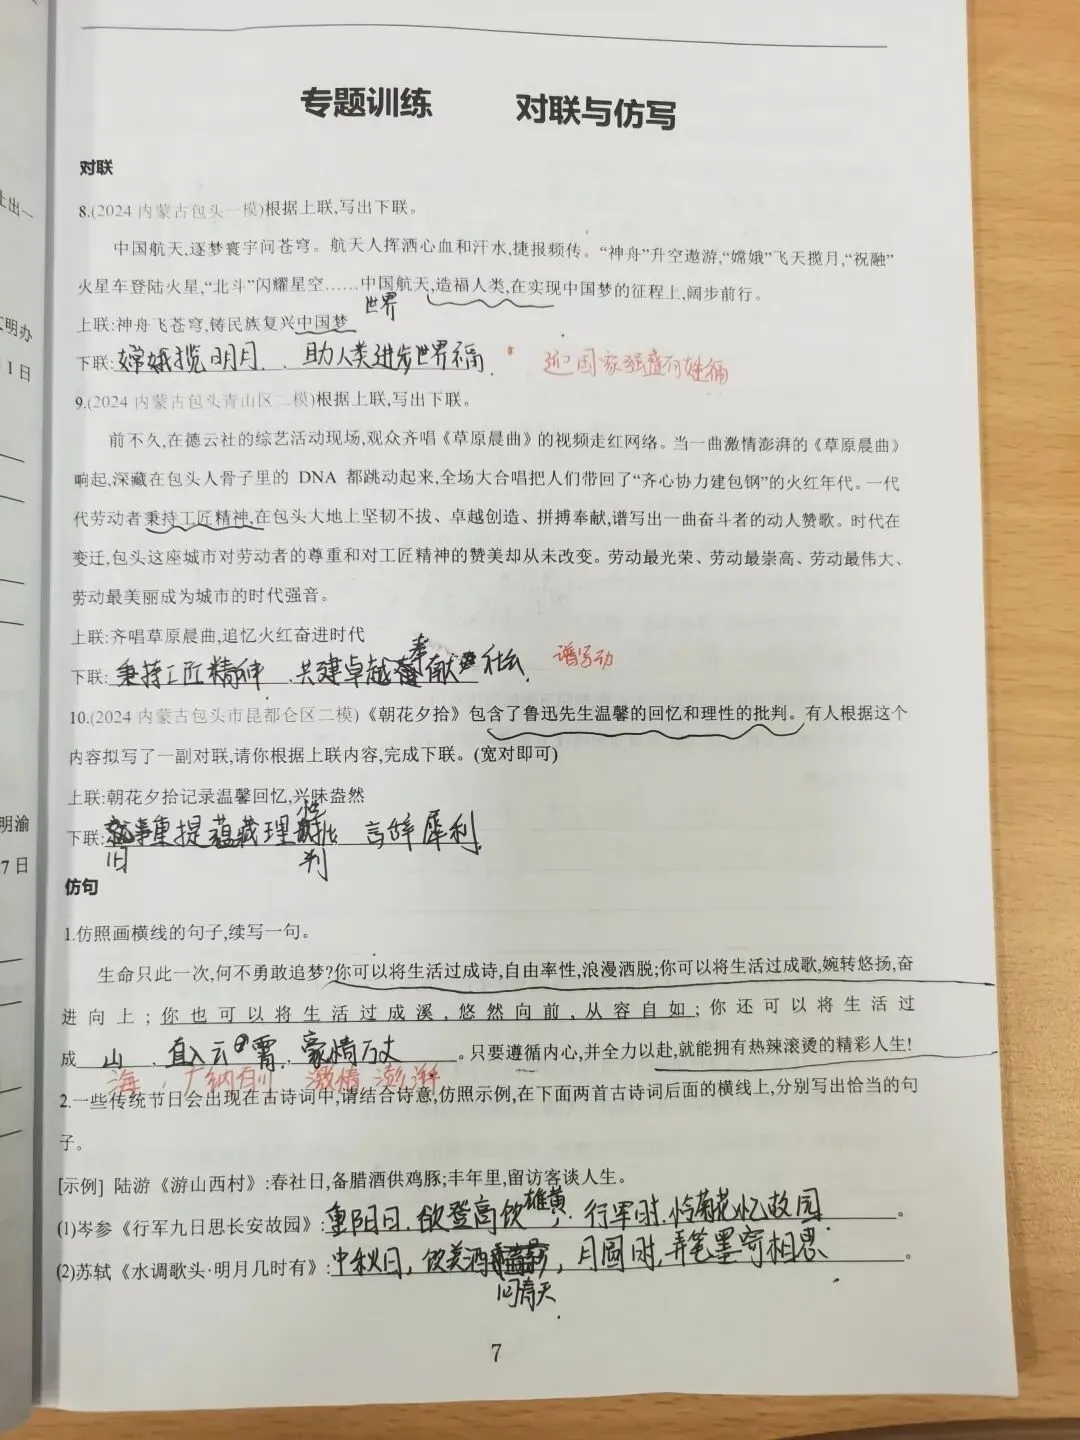 专题训练 对联与仿写
对联
8.(2024 内蒙古包头一模)根据上联,写出下联。
中国航天,逐梦寰宇问苍穹。航天人挥洒心血和汗水,捷报频传。“神舟”升空遨游,“嫦娥”飞天揽月,“祝融”
火星车登陆火星,“北斗”闪耀星空……中国航天,造福人类,在实现中国梦的征程上,阔步前行。
世界
上联:神舟飞苍穹,铸民族复兴中国梦
下联:嫦娥揽明月、助人类进步世界福.
迎国家强盛百姓福
9.(2024 内蒙古包头青山区二模)根据上联,写出下联。
前不久,在德云社的综艺活动现场,观众齐唱《草原晨曲》的视频走红网络。当一曲激情澎湃的《草原晨曲》
响起,深藏在包头人骨子里的 DNA 都跳动起来,全场大合唱把人们带回了“齐心协力建包钢”的火红年代。一代
代劳动者秉持工匠精神,在包头大地上坚韧不拔、卓越创造、拼搏奉献,谱写出一曲奋斗者的动人赞歌。时代在
变迁,包头这座城市对劳动者的尊重和对工匠精神的赞美却从未改变。劳动最光荣、劳动最崇高、劳动最伟大、
劳动最美丽成为城市的时代强音。
上联:齐唱草原晨曲,追忆火红奋进时代
奉
下联:秉持工匠精神.共建卓越献社会.
谱写动
10.(2024 内蒙古包头市昆都仑区二模)《朝花夕拾》包含了鲁迅先生温馨的回忆和理性的批判。有人根据这个
内容拟写了一副对联,请你根据上联内容,完成下联。(宽对即可)
上联:朝花夕拾记录温馨回忆,兴味盎然
性
下联:事重提蕴藏理批 言辞犀利.
旧 判
仿句
1.仿照画横线的句子,续写一句。
生命只此一次,何不勇敢追梦?你可以将生活过成诗,自由率性,浪漫洒脱;你可以将生活过成歌,婉转悠扬,奋
进向上;你也可以将生活过成溪,悠然向前,从容自如;你还可以将生活过
成 山 ,直入云霄,豪情万丈 。只要遵循内心,并全力以赴,就能拥有热辣滚烫的精彩人生!
海,广纳百川 激情澎湃
2.一些传统节日会出现在古诗词中,请结合诗意,仿照示例,在下面两首古诗词后面的横线上,分别写出恰当的句
子。
[示例] 陆游《游山西村》:春社日,备腊酒供鸡豚;丰年里,留访客谈人生。
(1)岑参《行军九日思长安故园》:重阳日,欲登高饮雄黄;行军时,怜菊花忆故园。
(2)苏轼《水调歌头·明月几时有》:中秋日,饮美酒,月圆时,弄笔墨寄相思。
问青天
7